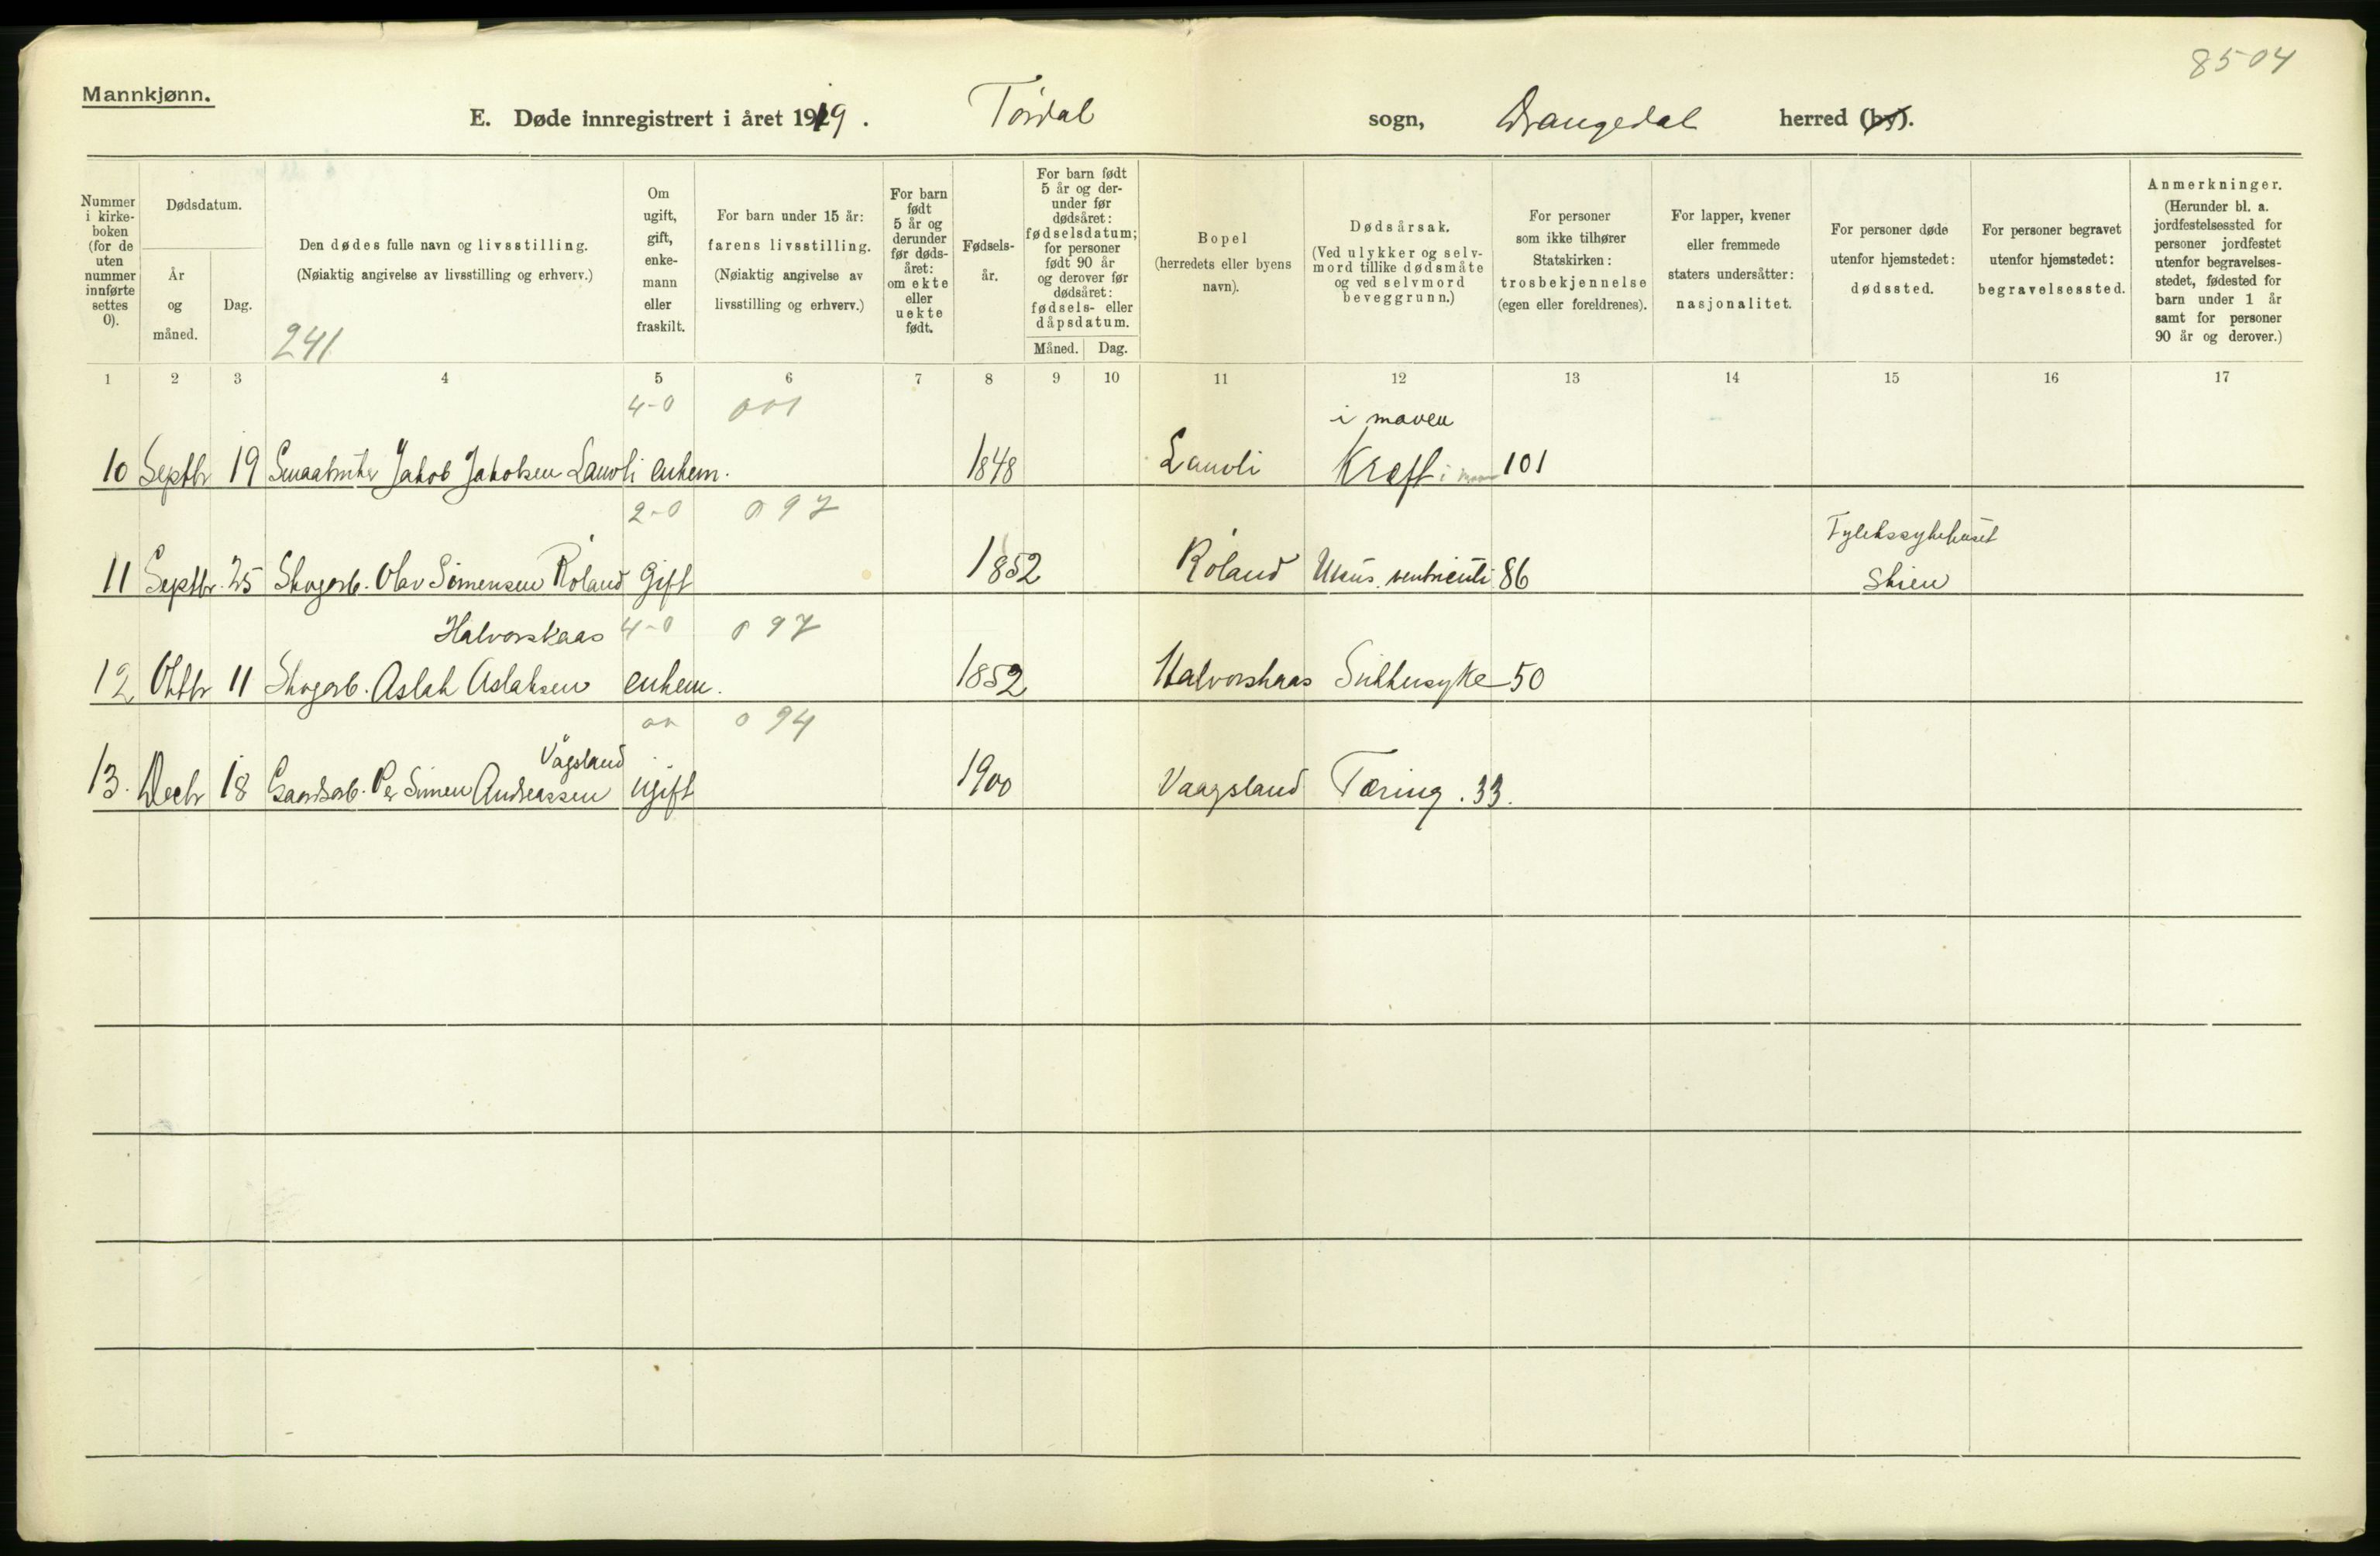 8504
Mannkjønn.
E. Døde innregistrert i året 1919. Tørdal sogn, Drangedal herred (by).
Nummer i kirke- boken (for de uten nummer innførte settes 0).
Dødsdatum.
År og måned.
Dag.
Den dødes fulle navn og livsstilling.
(Nøiaktig angivelse av livsstilling og erhverv.)
241
Om ugift, gift, enke- mann eller fraskilt.
For barn under 15 år: farens livsstilling. (Nøiaktig angivelse av livsstilling og erhverv.)
For barn født 5 år og derunder før døds- året: om ekte eller uekte født.
Fødsels- år.
For barn født 5 år og der- under før dødsåret: fødselsdatum; for personer født 90 år og derover før dødsåret: fødsels- eller dåpsdatum.
Måned. Dag.
Bopel (herredets eller byens navn).
Dødsårsak. (Ved ulykker og selv- mord tillike dødsmåte og ved selvmord beveggrunn.)
For personer som ikke tilhører Statskirken: trosbekjennelse (egen eller foreldrenes).
For lapper, kvener eller fremmede staters undersåtter: nasjonalitet.
For personer døde utenfor hjemstedet: dødssted.
For personer begravet utenfor hjemstedet: begravelsessted.
Anmerkninger. (Herunder bl. a. jordfestelsessted for personer jordfestet utenfor begravelses- stedet, fødested for barn under 1 år samt for personer 90 år og derover.)
1 2 3 4 5 6 7 8 9 10 11 12 13 14 15 16 17
4-0 001 i maven
10 Septbr 19 Smaabruker Jakob Jakobsen Lauvli enkem. 1848 Lauvli Kræft i maven 101
2-0 097 Fylkessykehuset
11 Septbr. 25 Skogarb. Olav Simensen Roland Gift 1852 Roland Ulcus ventriculi 86 Skien
Halvorskaas 4-0 097
12 Oktbr 11 Skogarb. Aslak Aslaksen enkem. 1852 Halvorskaas Sukkersyke 50
094
Vågsland
13. Decbr 18 Gaardsarb. Per Simen Andreassen ugift 1900 Vaagsland Tæring. 33.